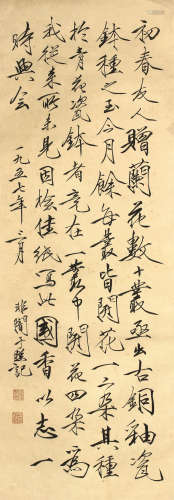 初春友人贈蘭花數十叢亟出古銅釉瓷
鉢種之至今月餘每叢皆開花一二朵其種
於青花瓷鉢者竟在一叢中開花四朵為
我從来所未見因檢佳紙寫此國香以志一
時興會
一九五七年三月
非闇于照記